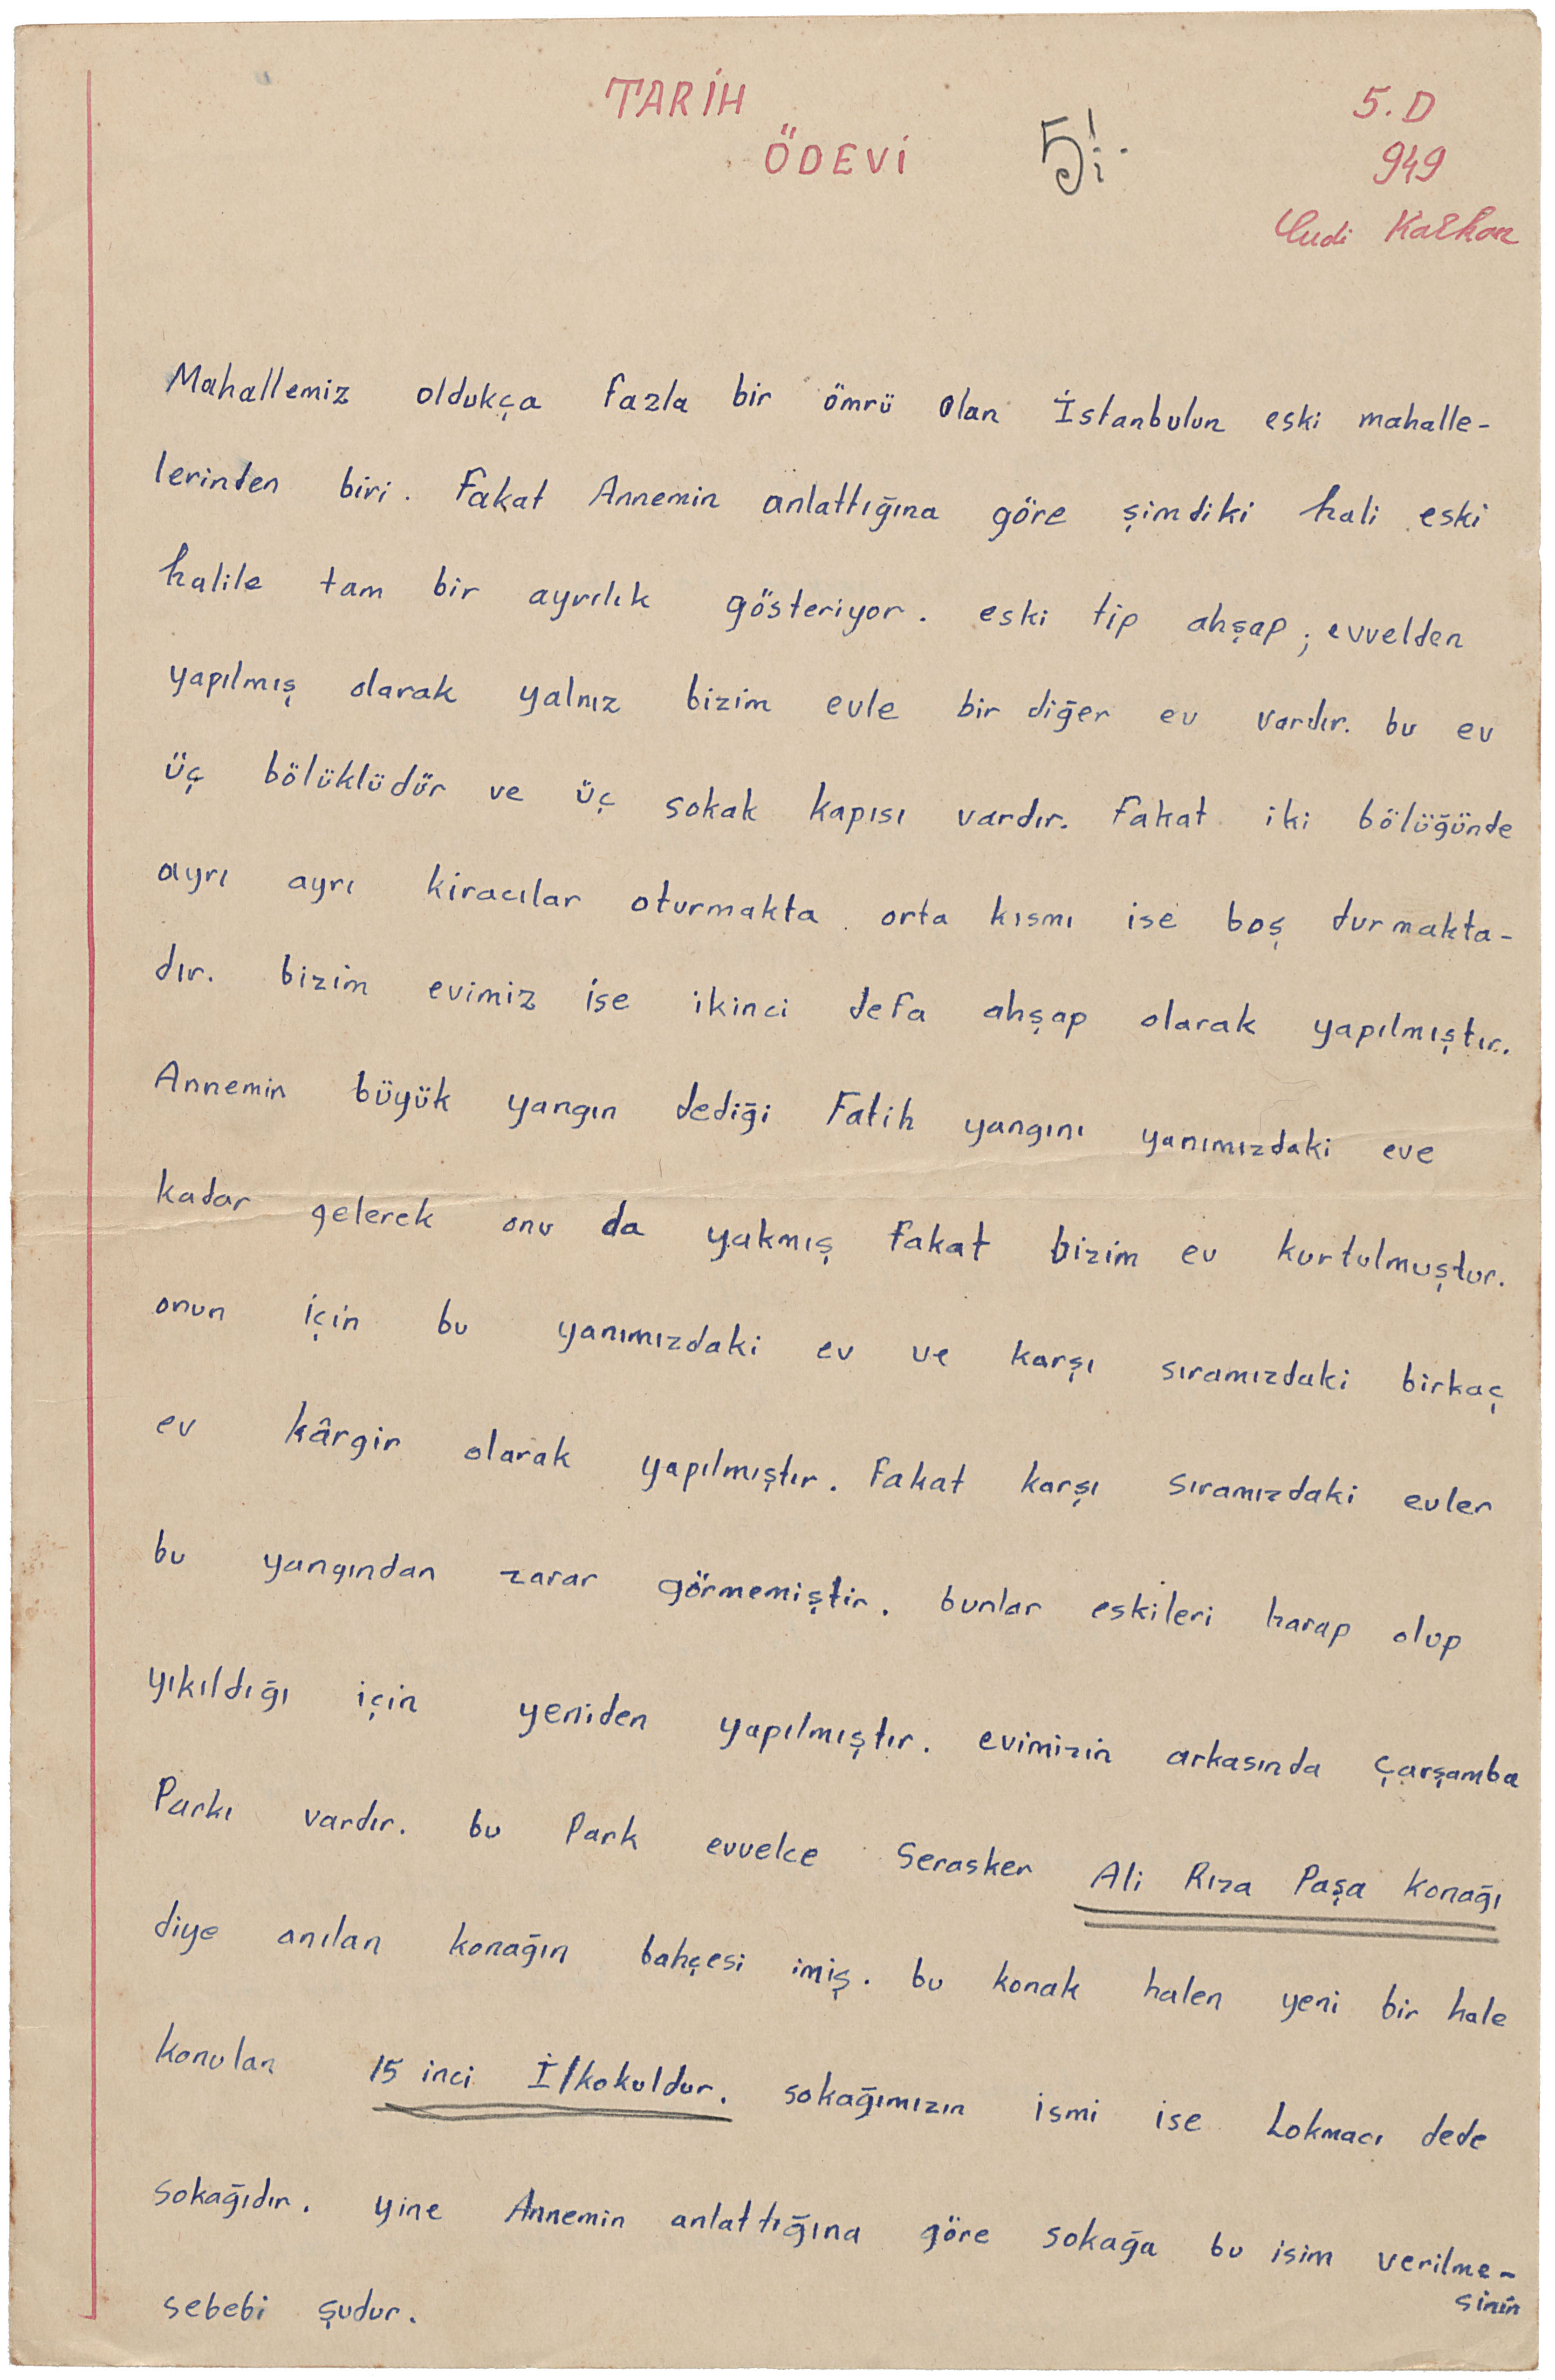 TARİH
ÖDEVİ
5
5.D
949
Kalkan
Mahallemiz oldukça fazla bir ömrü olan İstanbulun eski mahalle-
lerinden biri. Fakat Annemin anlattığına göre şimdiki hali eski
halile tam bir ayrılık gösteriyor. eski tip ahşap; evvelden
yapılmış olarak yalnız bizim evle bir diğer ev vardır. bu ev
üç bölüklüdür ve üç sokak kapısı vardır. Fakat iki bölüğünde
ayrı ayrı kiracılar oturmakta. orta kısmı ise boş durmakta-
dır. bizim evimiz ise ikinci defa ahşap olarak yapılmıştır.
Annemin büyük yangın dediği Fatih yangını yanımızdaki eve
kadar gelerek onu da yakmış fakat bizim ev kurtulmuştur.
onun için bu yanımızdaki ev ve karşı sıramızdaki birkaç
ev kârgir olarak yapılmıştır. Fakat karşı sıramızdaki evler
bu yangından zarar görmemiştir. bunlar eskileri harap olup
yıkıldığı için yeniden yapılmıştır. evimizin arkasında Çarşamba
Parkı vardır. bu Park evvelce Serasker Ali Rıza Paşa konağı
diye anılan konağın bahçesi imiş. bu konak halen yeni bir hale
konulan 15 inci İlkokuldur. sokağımızın ismi ise Lokmacı dede
sokağıdır. yine Annemin anlattığına göre sokağa bu isim verilme-
sinin
sebebi şudur.